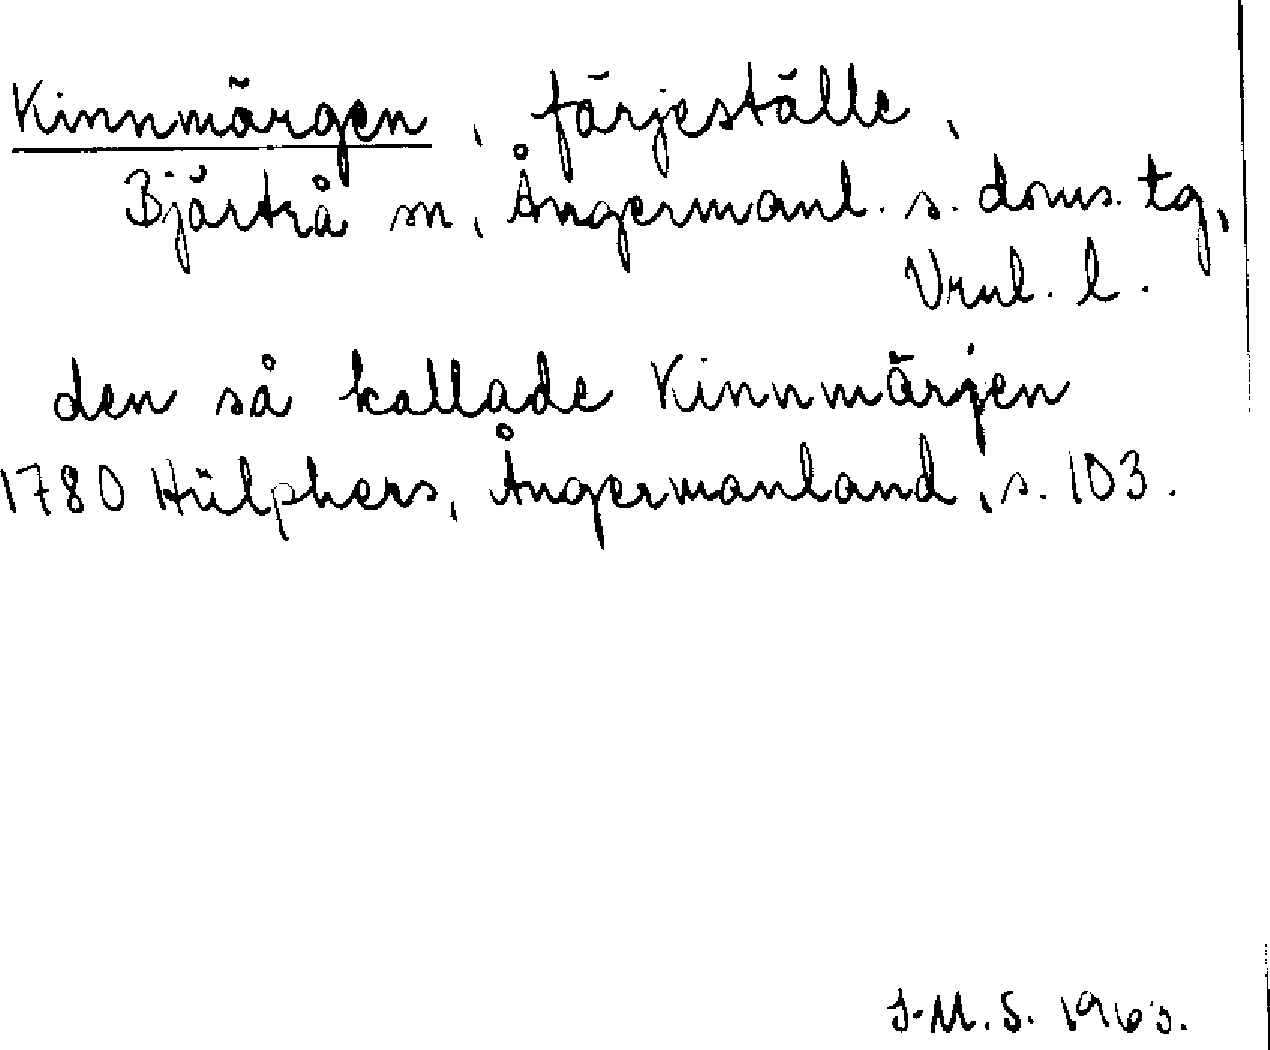 Kinnmärgen, färjeställe,
Bjärtrå sn, Ångermanl. s. doms. tg,
Vrnl. l.
den så kallade Kinnmärjen
1780 Hülphers, Ångermanland, s. 103.
J.M.S. 1963.